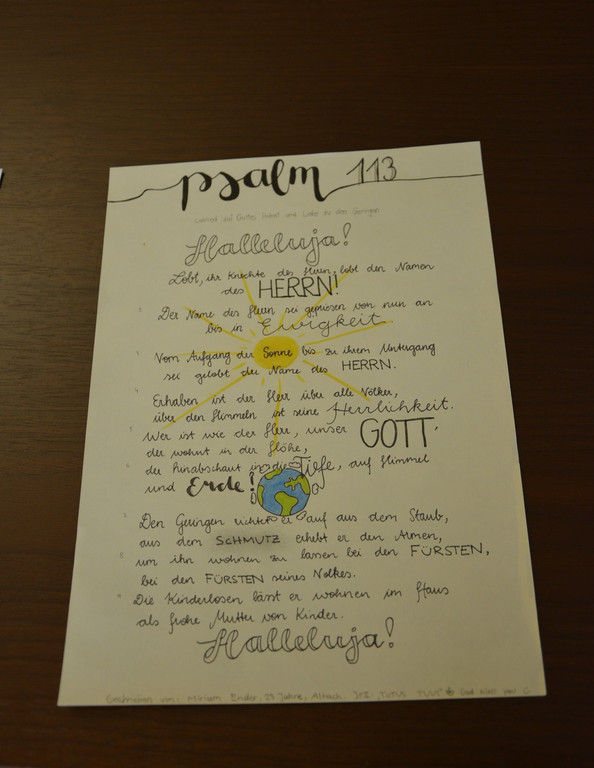 psalm 113
Loblied auf Gottes Hoheit und Liebe zu den Geringen
Halleluja!
Lobt, ihr Knechte des Herrn, lobt den Namen
des HERRN!
Der Name des Herrn sei gepriesen von nun an
bis in Ewigkeit
Vom Aufgang der Sonne bis zu ihrem Untergang
sei gelobt der Name des HERRN.
Erhaben ist der Herr über alle Völker,
über den Himmeln ist seine Herrlichkeit.
Wer ist wie der Herr, unser GOTT,
der wohnt in der Höhe,
der hinabschaut in die Tiefe, auf Himmel
und Erde!
Den Geringen richtet er auf aus dem Staub,
aus dem SCHMUTZ erhebt er den Armen,
um ihn wohnen zu lassen bei den FÜRSTEN,
bei den FÜRSTEN seines Volkes.
Die Kinderlosen lässt er wohnen im Haus
als frohe Mutter von Kinder.
Halleluja!
Geschrieben von Miriam Jahre, "TOTUS TUUS"